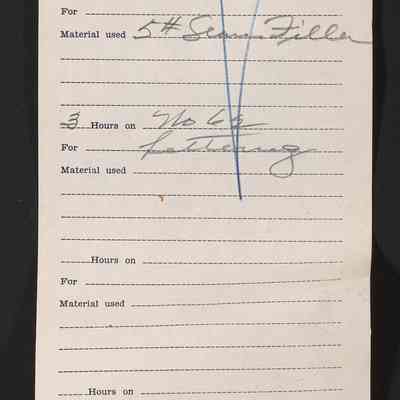 For
Material used 5# Seam Filler
3 Hours on No 62
For Lettering
Material used
Hours on
For
Material used
Hours on